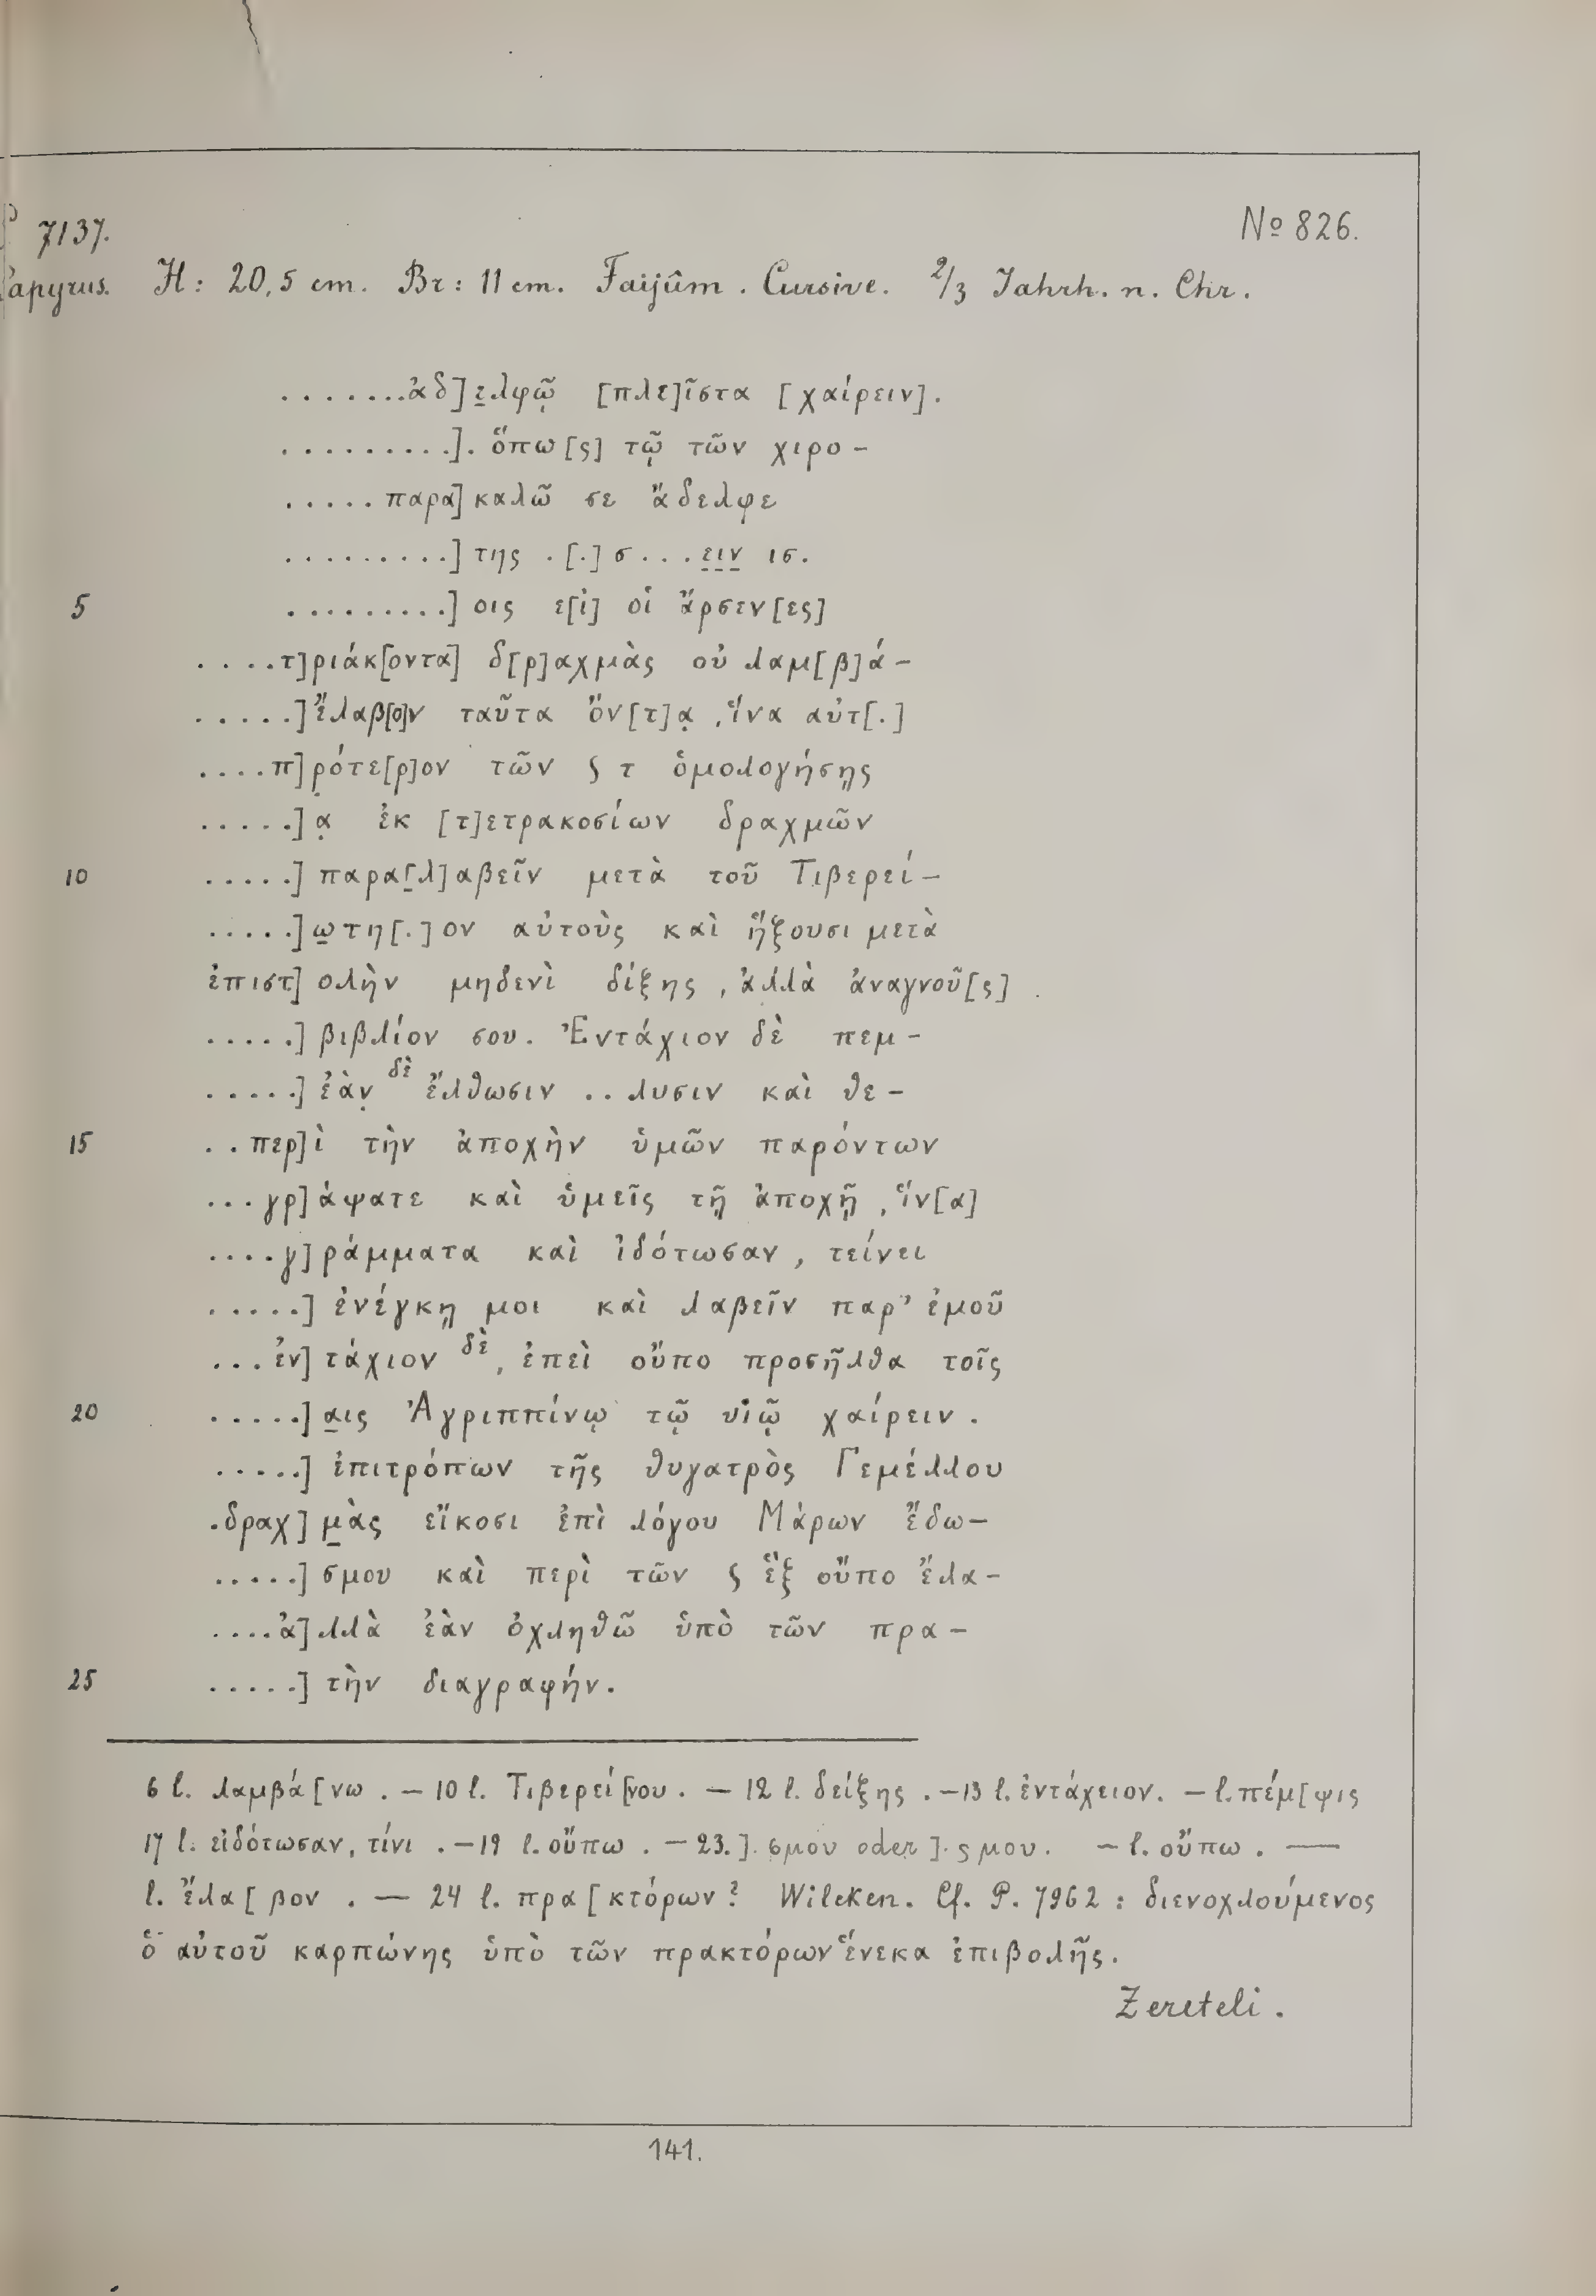 P 7137. № 826.
Papyrus. H: 20,5 cm. Br: 11 cm. Faijûm. Cursive. 2/3 Jahrh. n. Chr.
.......ἀδ]ε̲λφῷ [πλε]ῖστα [χαίρειν].
.........]. ὅπω[ς] τῷ τῶν χιρο-
.....παρα]καλῶ σε ἄδελφε
.........]της .[.]σ...ειν ισ.
5 .........]οις ε[ἰ] οἱ ἄρσεν[ες]
....τ]ριάκ[οντα] δ[ρ]αχμὰς οὐ λαμ[β]ά-
.....]ἔλαβ[ο]ν ταῦτα ὄν[τ]α̣, ἵνα αὐτ[.]
....π]ρ̣ότε[ρ]ον τῶν ϛ τ ὁμολογήσῃς
.....]α̣ ἐκ [τ]ετρακοσίων δραχμῶν
10 .....]παρα[λ]αβεῖν μετὰ τοῦ Τιβερεί-
.....]ω̲τη[.]ον αὐτοὺς καὶ ἥξουσι μετὰ
ἐπιστ]ολὴν μηδενὶ δίξης, ἀλλὰ ἀναγνοῦ[ς]
.....]βιβλίον σου. Ἐντάχιον δὲ πεμ-
.....]ἐὰν̣ δὲ ἔλθωσιν ..λυσιν καὶ θε-
15 ..περ]ὶ τὴν ἀποχὴν ὑμῶν παρόντων
...γρ]άψατε καὶ ὑμεῖς τῇ ἀποχῇ, ἵν[α]
....γ]ράμματα καὶ ἰδότωσαν, τείνει
.....]ἐνέγκῃ μοι καὶ λαβεῖν παρ’ ἐμοῦ
...ἐν]τάχιον δὲ, ἐπεὶ οὔπο προσῆλθα τοῖς
20 .....]α̲ις Ἀγριππίνῳ τῷ υἱῷ χαίρειν.
.....]ἐπιτρόπων τῆς θυγατρὸς Γεμέλλου
.δραχ]μ̲ὰς εἴκοσι ἐπὶ λόγου Μάρων ἔδω-
.....]σμου καὶ περὶ τῶν ϛ ἓξ οὔπο ἔλα-
....ἀ]λλὰ ἐὰν ὀχληθῶ ὑπὸ τῶν πρα-
25 .....]τὴν διαγραφήν.
6 l. λαμβά[νω. — 10 l. Τιβερεί[νου. — 12 l. δείξης. — 13 l. ἐντάχειον. — l. πέμ[ψις
17 l. εἰδότωσαν, τίνι. — 19 l. οὔπω. — 23. ]. σμου oder ]. ϛ μου. — l. οὔπω. —
l. ἔλα[βον. — 24 l. πρα[κτόρων? Wilcken. Cf. P. 7962: διενοχλούμενος
ὁ αὐτοῦ καρπώνης ὑπὸ τῶν πρακτόρων ἕνεκα ἐπιβολῆς.
Zereteli.
141.